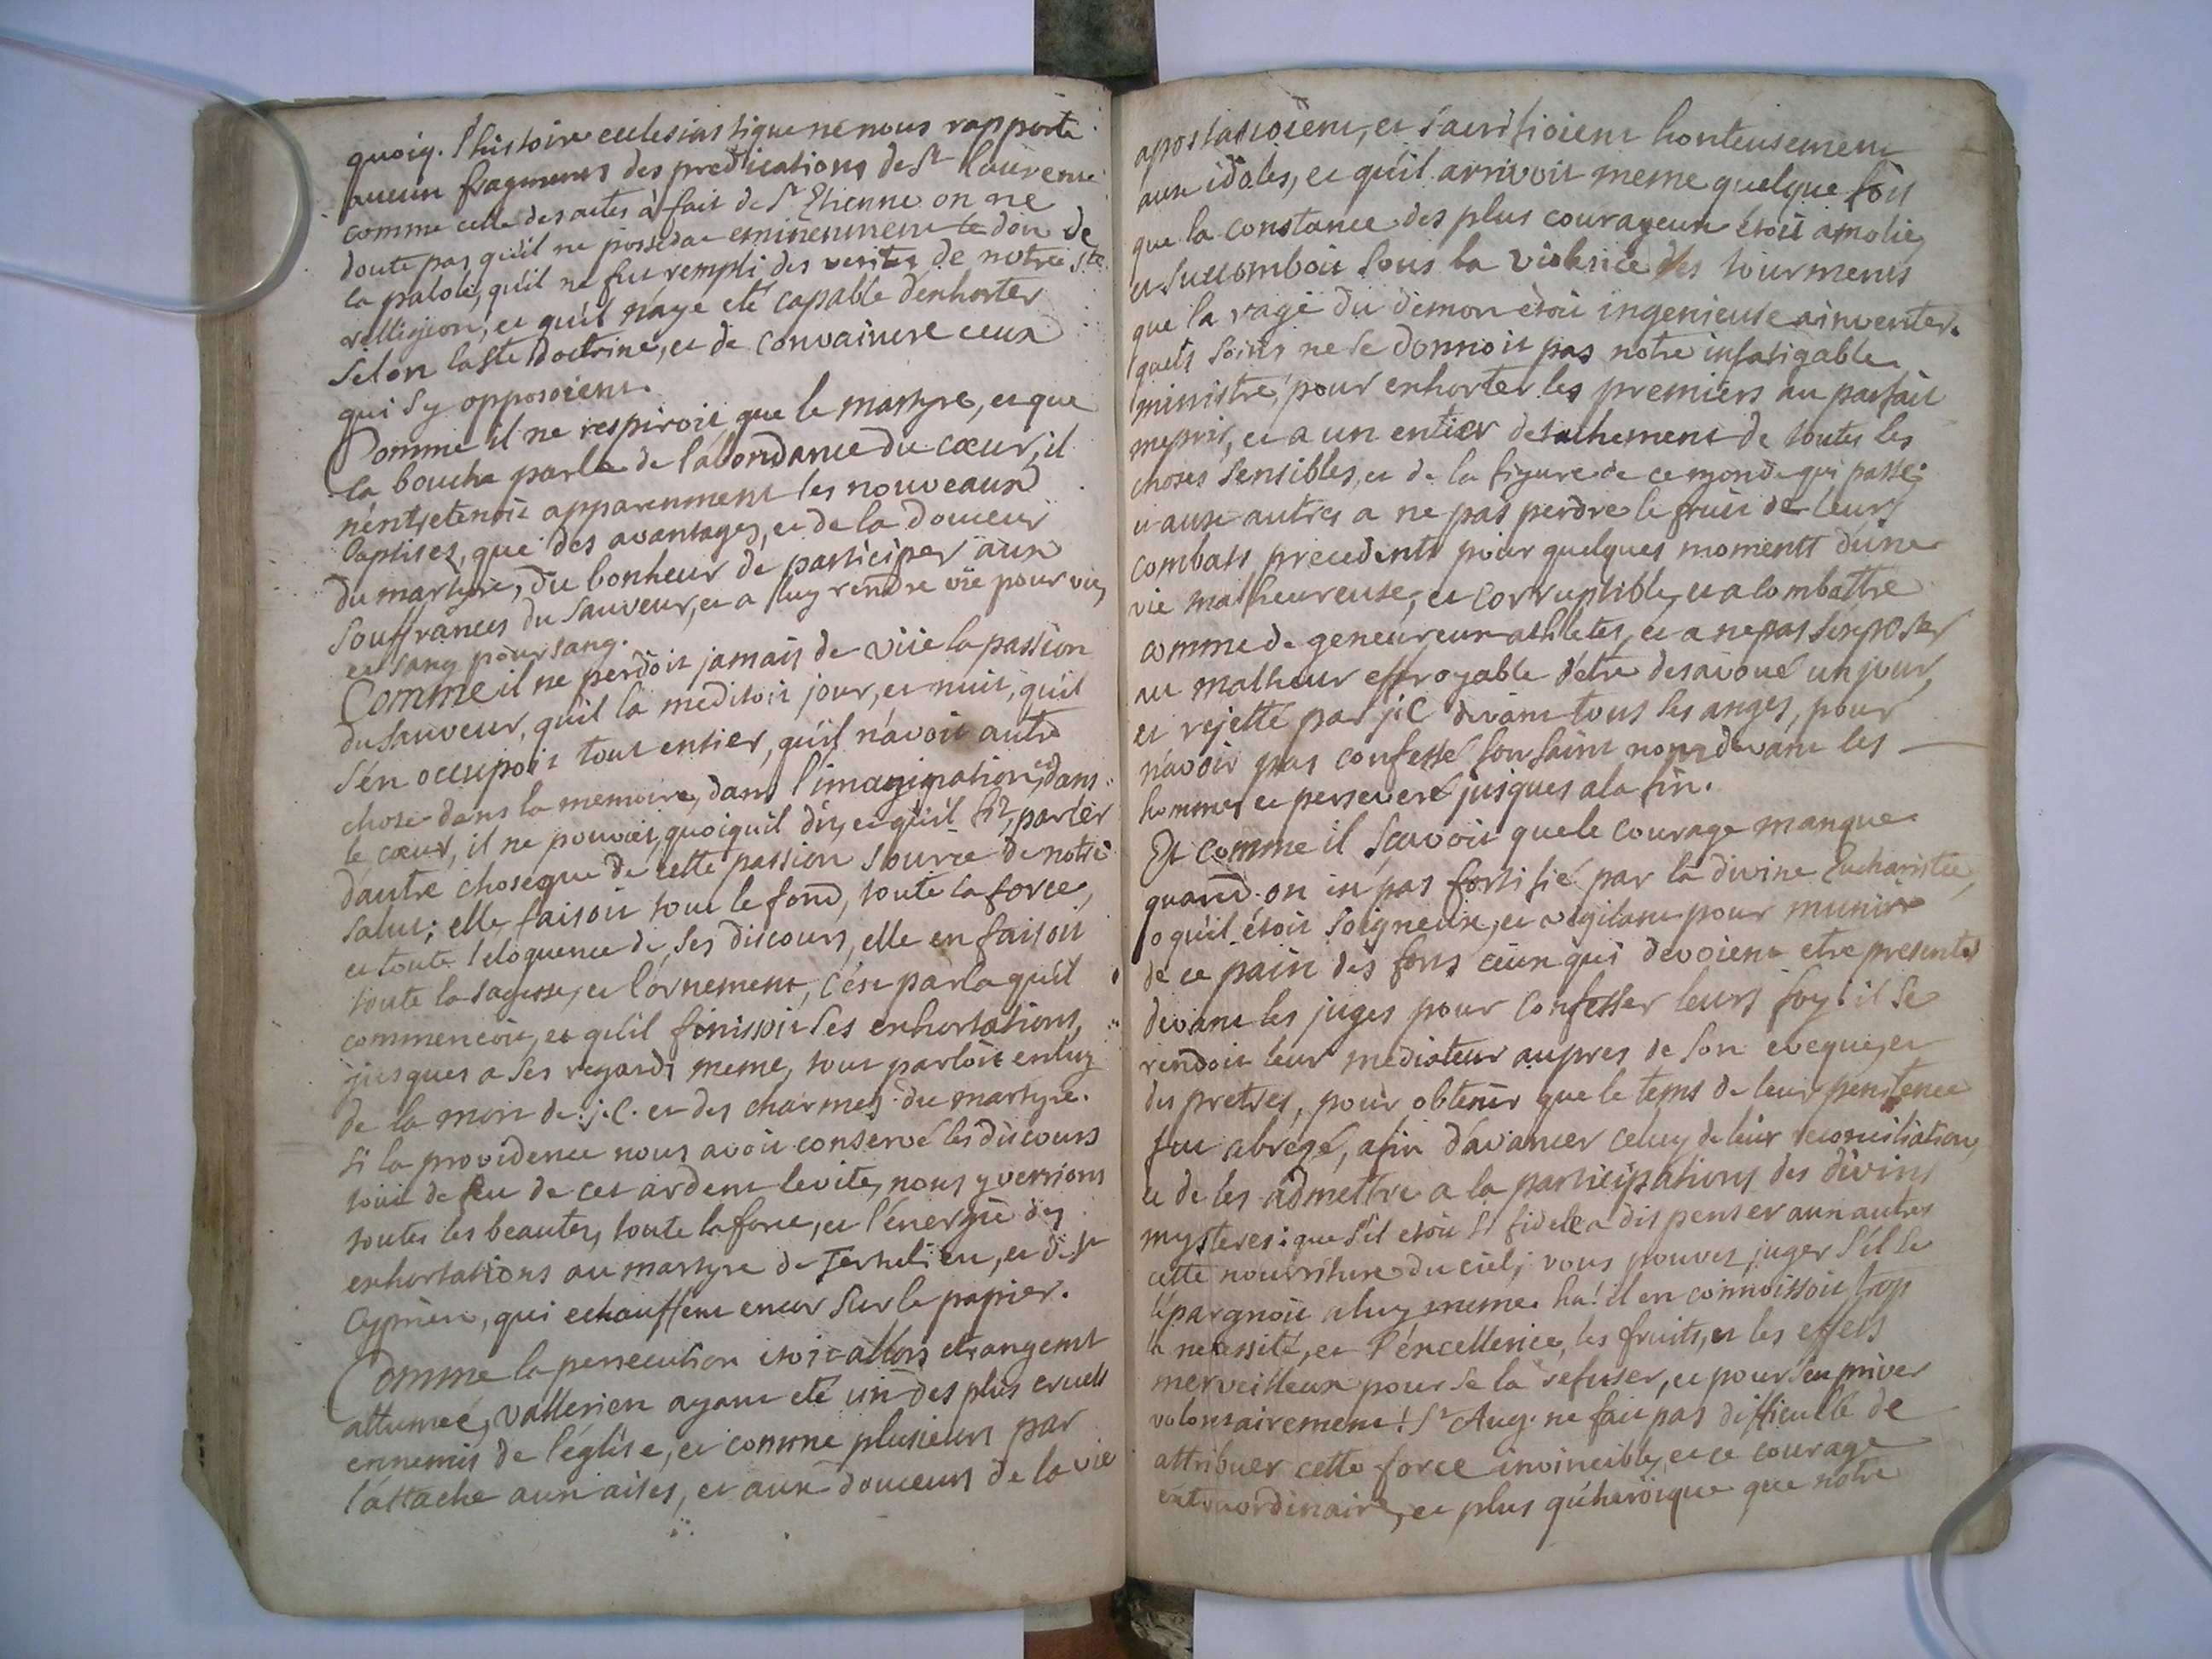 quoiq. l'histoire ecclesiastique ne nous rapporte
aucun fragments des predications de St laurent
comme celle des actes à fait de St Etienne on ne
doute pas qu'il ne possedat eminenment le don de
la parole, qu'il ne fut rempli des verites de notre ste
relligion, et qu'il n'aye eté capable d'exhorter
selon la ste doctrine, et de convaincre ceux
qui s'y opposoient.
Comme il ne respiroit que le martyre, et que
la bouche parle de l'abondance du cœur, il
n'entretenoit apparenment les nouveaux
baptisez, que des avantages, et de la douceur
du martyre, du bonheur de participer aux
souffrances du sauveur, et a luy rendre vie pour vie,
et sang pour sang.
Comme il ne perdoit jamais de vüe la passion
du sauveur, quil la meditoit jour, et nuit, qu'il
s'en occupoit tout entier, qu'il n'avoit autre
chose dans la memoire, dans l'imagination, et dans
le cœur, il ne pouvoit, quoiquil dit, et qu'il fit, parler
d'autre chose que de cette passion source de notre
salut; elle faisoit tout le fond, toute la force,
et toute l'eloquence de ses discours, elle en faisoit
toute la sagesse, et l'ornement, c'est par la qu'il
commencoit, et qu'il finissoit ses exhortations,
jusques a ses regards meme, tout parloit en luy
de la mort de j.C. et des charmes du martyre.
si la providence nous avoit conservé les discours
tout de feu de cet ardent levite, nous y verrions
toutes les beautez, toute la force, et l'energie des
exhortations au martyre de Tertulien, et de st
Cyprien, qui echauffent encor sur le papier.
Comme la persecution etoit allors etrangemt
allumeé, vallerien ayant eté un des plus cruels
ennemis de l'église, et comme plusieurs par
l'attache aux aises, et aux douceurs de la vie
apostasioient, et sacrifioient honteusement
aux idoles, et qu'il arrivoit meme quelque fois
que la constance des plus courageux étoit amolie,
et succomboit sous la violence des tourments
que la rage du demon étoit ingenieuse a inventer.
quels soins ne se donnoit pas notre infatigable
ministre, pour exhorter les premiers au parfait
mepris, et a un entier detachement de toutes les
choses sensibles, et de la figure de ce monde qui passe;
et aux autres a ne pas perdre le fruit de leurs
combats precedents pour quelques moments d'une
vie malheureuse, et corruptible, et a combattre
comme de genéureux athletes, et a ne pas s'exposer
au malheur effroyable d'etre desavoué un jour,
et rejetté par j.C devant tous les anges, pour
n'avoir pas confessé son saint nom devant les
hommes et perseveré jusques a la fin.
Et comme il scavoit que le courage manque
quand on n'est pas fortifié par la divine Eucharistie,
o qu'il étoit soigneux, et vigilant pour munir
de ce pain des forts ceux qui devoient etre presentés
devant les juges pour confesser leurs foy! il se
rendoit leur mediateur aupres de son eveque, et
des pretres, pour obtenir que le tems de leur penitence
fut abregé, afin d'avancer celuy de leur reconciliation,
et de les admettre a la participations des divins
mysteres: que s'il etoit si fidele a dispenser aux autres
cette nourriture du ciel, vous pouvez juger s'il se
l'epargnoit a luy meme. ha! il en connoissoit trop
la necessité, et l'excellence, les fruits, et les effets
merveilleux pour se la refuser, et pour s'en priver
volontairement! St Aug. ne fait pas difficulté de
attribuer cette force invincible, et ce courage
extraordinaire, et plus qu'heroique que notre